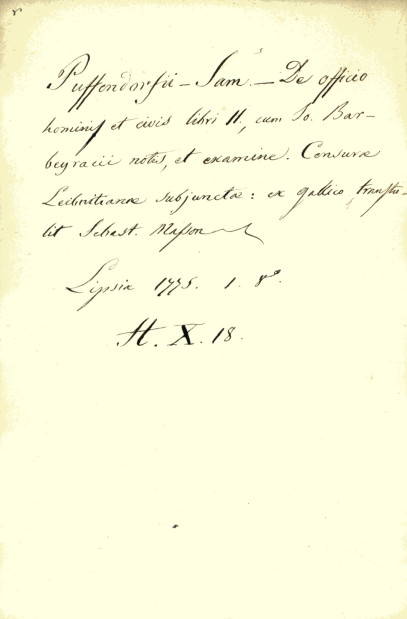 Puffendorfii – Sam. – De officio
hominis et civis libri II, cum Io. Bar-
beyracii notis, et examine. Censuræ
Leibnitianæ subjunctæ: ex gallico transtu-
lit Sebast. Masson
Lipsiæ 1775. 1. 8º.
H. X. 18.